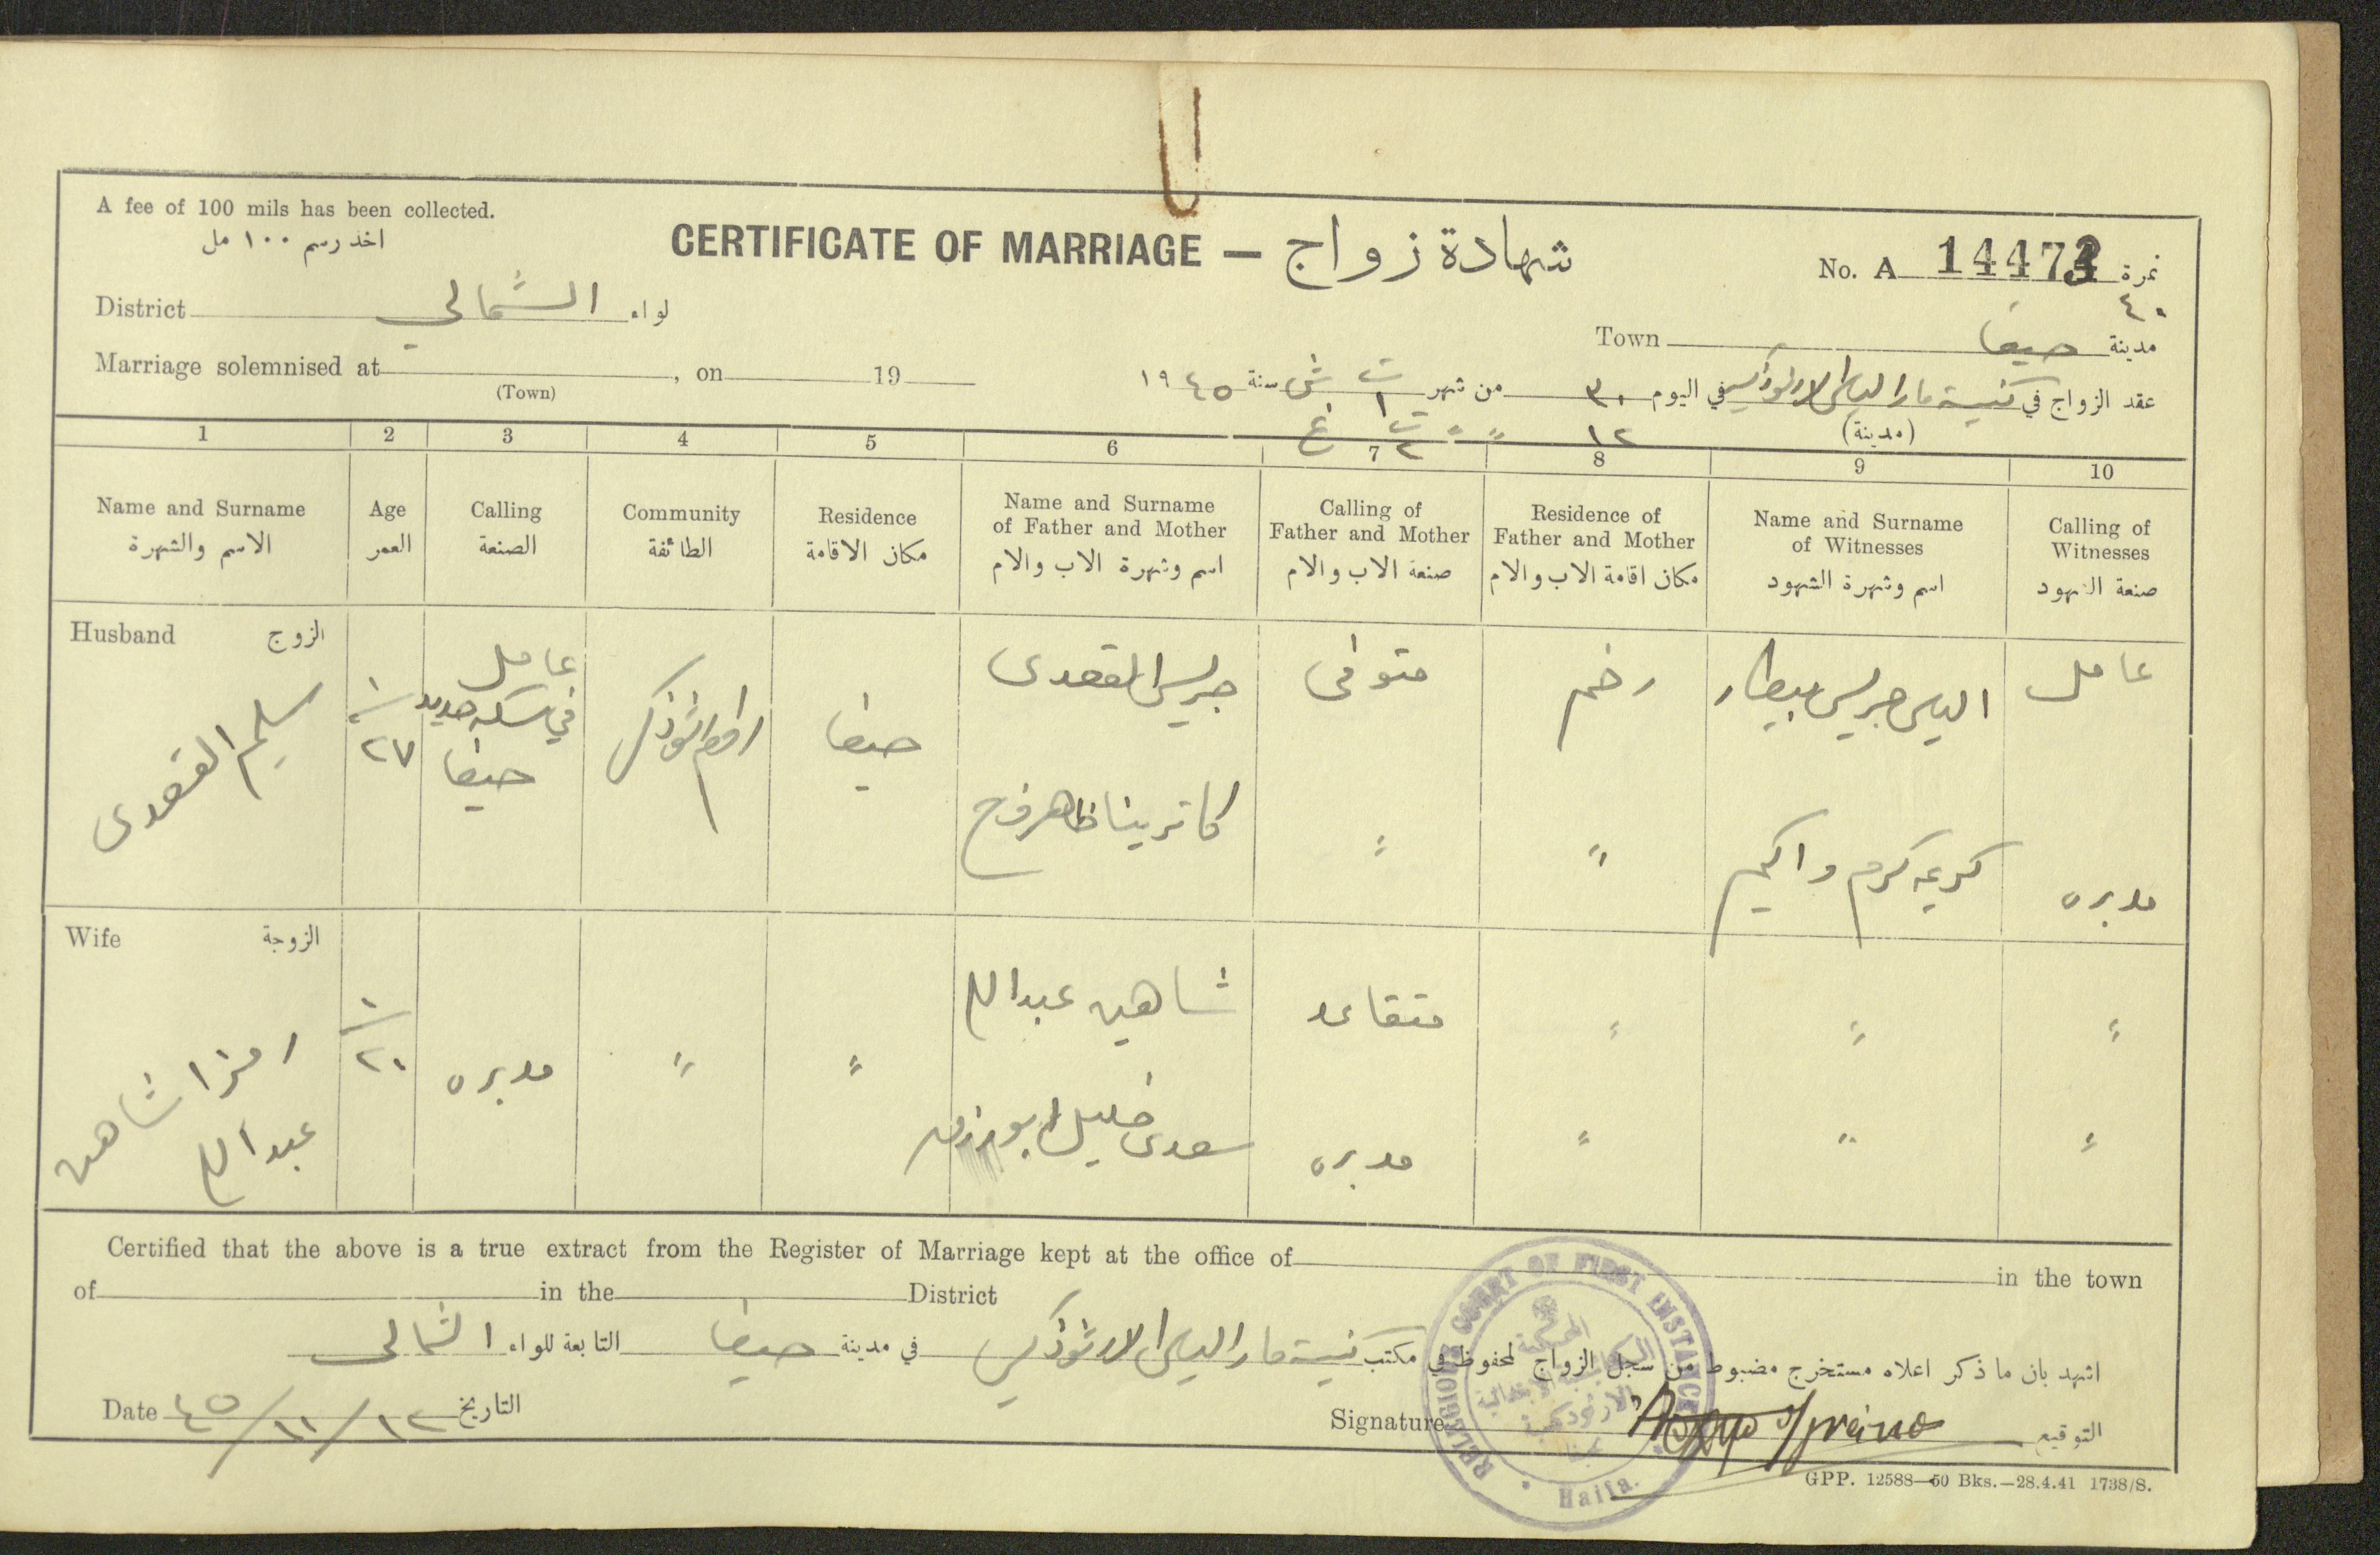 A fee of 100 mils has been collected.
اخذ رسم ١٠٠ مل
CERTIFICATE OF MARRIAGE — شهادة زواج
No. A 14473 نمرة
٤٠
District الشمالي لواء
Town حيفا مدينة
Marriage solemnised at , on 19
(Town)
عقد الزواج في كنيسة مار الياس الارثوذكسية في اليوم ٣٠ من شهر ت ١ ش سنة ١٩٤٥
(مدينة)
١٢ " " ت ٢ غ
1 2 3 4 5 6 7 8 9 10
Name and Surname
الاسم والشهرة
Age
العمر
Calling
الصنعة
Community
الطائفة
Residence
مكان الاقامة
Name and Surname
of Father and Mother
اسم وشهرة الاب والام
Calling of
Father and Mother
صنعة الاب والام
Residence of
Father and Mother
مكان اقامة الاب والام
Name and Surname
of Witnesses
اسم وشهرة الشهود
Calling of
Witnesses
صنعة الشهود
Husband الزوج
سليم القعدى
٢٧
عامل
في سكه حديد
حيفا
حيفا
جريس القعدى
متوفى
الياس جريس بيطار
عامل
كاترينا ظاهر فرح
"
"
كريمه كرم واكيم
مدبره
Wife الزوجة
شاهين
عبدالله
٢٠
مدبره
"
"
شاهين عبدالله
متقاعد
"
"
"
سعدى خليل ابو
مدبره
"
"
"
Certified that the above is a true extract from the Register of Marriage kept at the office of in the town
of in the District
اشهد بان ما ذكر اعلاه مستخرج مضبوط من سجل الزواج المحفوظ في مكتب كنيسة مار الياس الارثوذكس في مدينة حيفا التابعة للواء الشمالى
Date ١٢/١١/٤٥ التاريخ
Signature التوقيع
RELIGIOUS COURT OF FIRST INSTANCE
Haifa.
GPP. 12588—50 Bks.—28.4.41 1738/S.